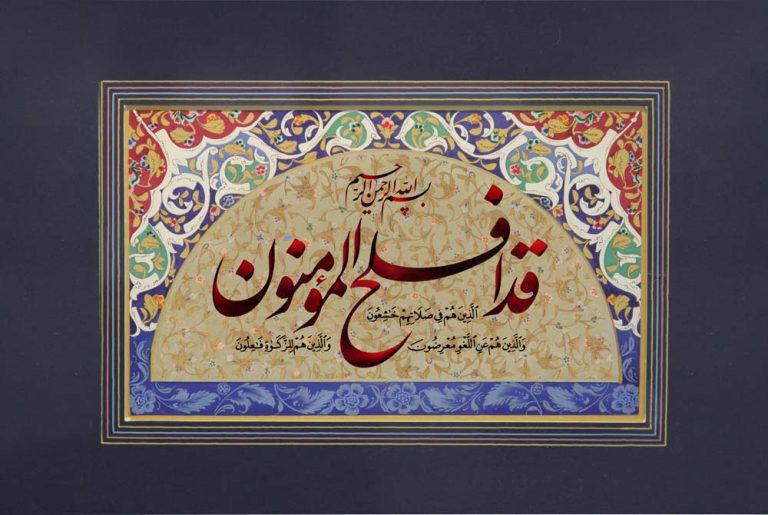 بسم الله الرحمن الرحیم
قد افلح المؤمنون
الَّذِينَ هُمْ فِي صَلَاتِهِمْ خَٰشِعُونَ
وَالَّذِينَ هُمْ عَنِ اللَّغْوِ مُعْرِضُونَ وَالَّذِينَ هُمْ لِلزَّكَوٰةِ فَٰعِلُونَ